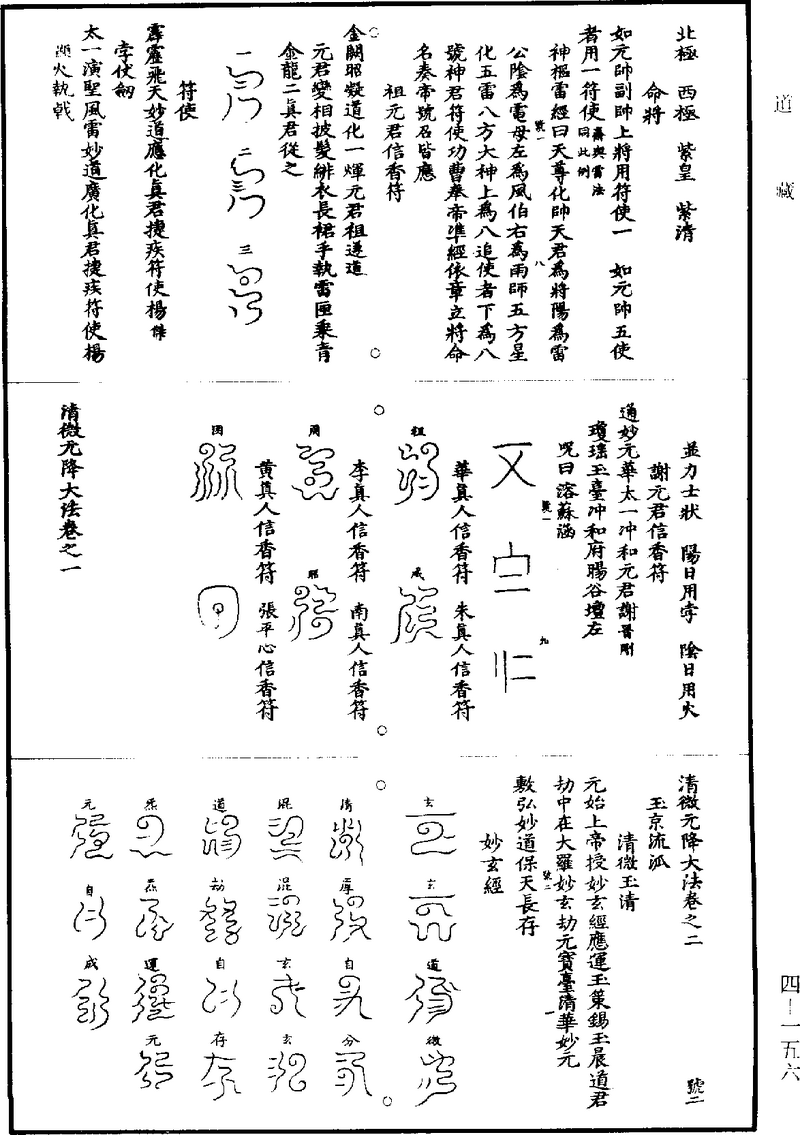 道藏
四—一五六
北極　西極　紫皇　紫清
命將
如元帥副帥上將用符使一　如元帥五使
者用一符使
同此例
神樞雷經曰天尊化帥天君為將陽為雷
號一
八
公陰為電母左為風伯右為雨師五方星
化五雷八方大神上為八追使者下為八
號神君符使功曹奉帝準經依章立將命
名奏帝號召皆應
祖元君信香符
金闕昭凝道化一煇元君祖遂道
元君變相披髮緋衣長裙手執雷匣乘青
金龍二真君從之
一
二
三
符使
霹靂飛天妙道應化真君捷疾符使楊傑
孛仗劒
太一演聖風雷妙道廣化真君捷疾符使楊
火執戟
並力士狀　陽日用孛　陰日用火
謝元君信香符
通妙元華太一沖和元君謝
瓊瑤玉臺冲和府暘谷壇左
咒曰溶蘇滃
號一
九
華真人信香符　朱真人信香符
祖
成
李真人信香符　南真人信香符
周
昭
黃真人信香符　張平心信香符
因
清微元降大法卷之一
清微元降大法卷之二
號二
玉京流派
清微玉清
元始上帝授妙玄經應運玉策錫玉晨道君
劫中在大羅妙玄劫元寶臺清華妙元
號二
一
敷弘妙道保天長存
妙玄經
玄　玄　道　微
清　厚　自　分
混　混　玄　玄
道　劫　自　存
炁　炁　運　元
元　自　成